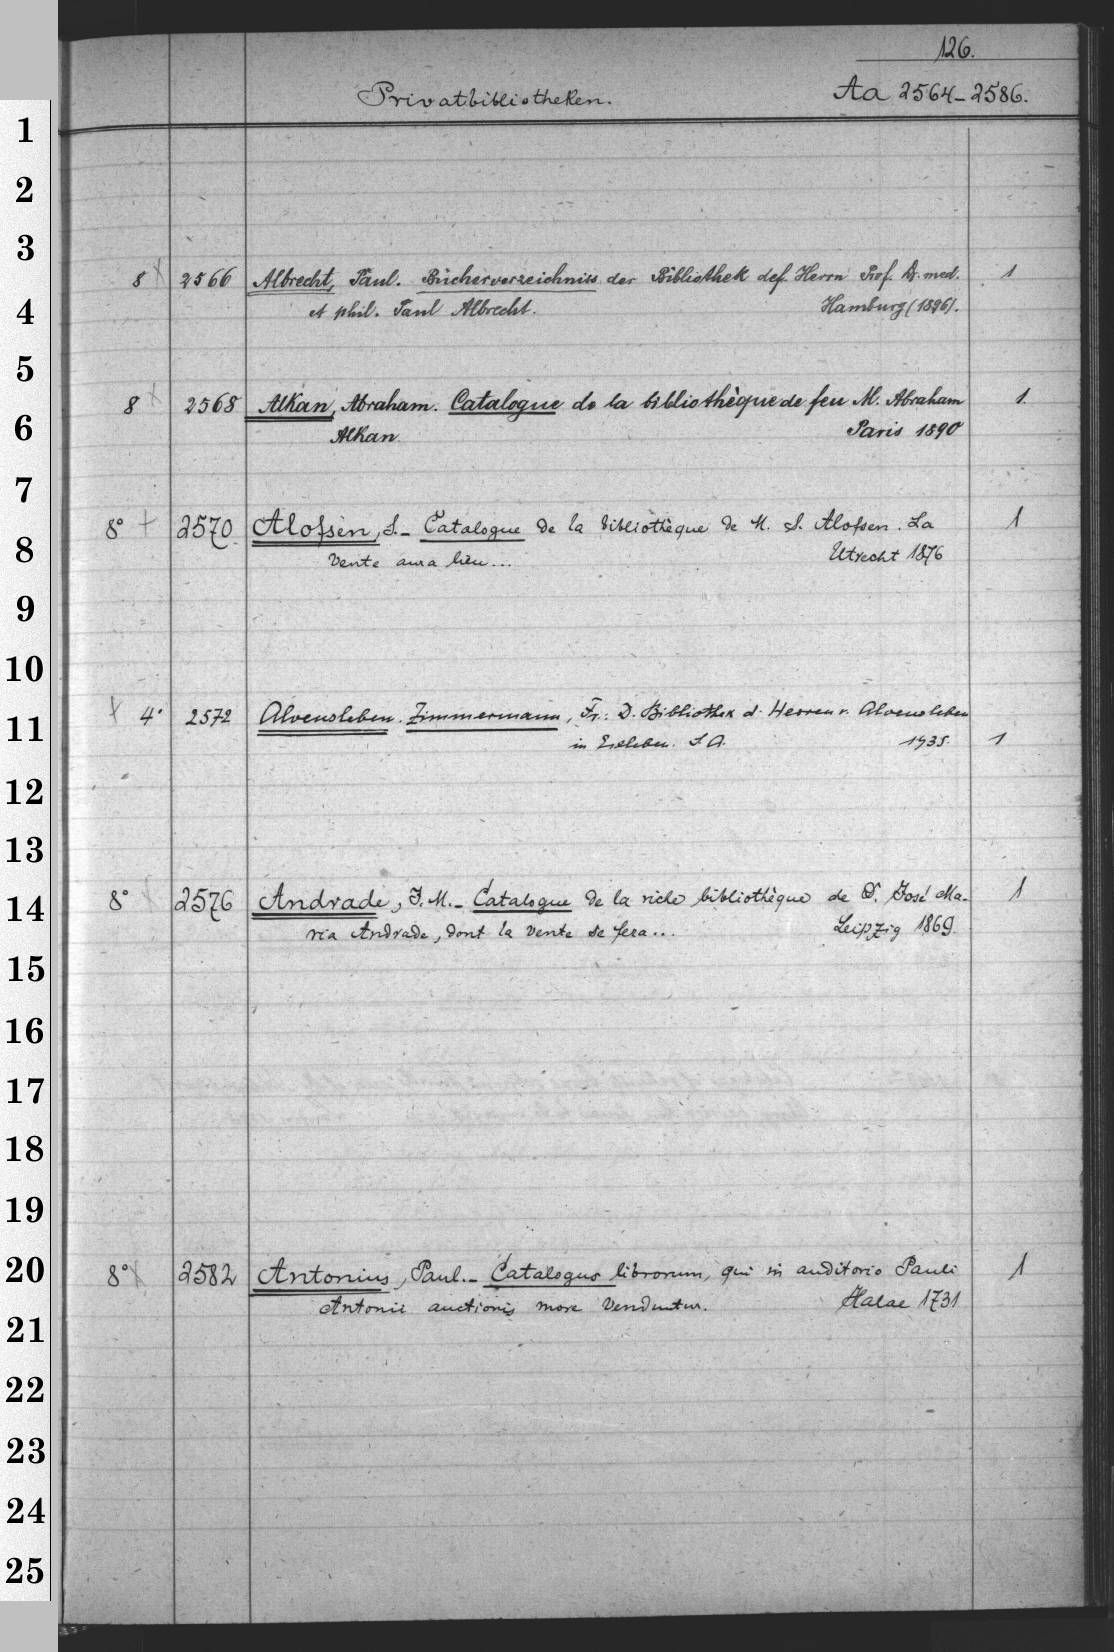 126.
Privatbibliotheken. Aa 2564-2586.
1
2
3
8 2566 Albrecht, Paul. Bücherverzeichniss der Bibliothek des Herrn Prof. Dr. med. 1
et phil. Paul Albrecht. Hamburg (1896).
4
5
8 2568 Alkan, Abraham. Catalogue de la bibliothèque de feu M. Abraham 1.
Alkan Paris 1890
6
7
8° 2570. Alofsen, S.- Catalogue de la bibliothèque de M. S. Alofsen. La 1
vente aura lieu... Utrecht 1876
8
9
10
4° 2572 Alvensleben. Zimmermann, Fr.: D. Bibliothek d. Herren v. Alvensleben
in Erxleben. S.A. 1935. 1
11
12
13
8° 2576 Andrade, J. M.- Catalogue de la riche bibliothèque de D. José Ma- 1
ria Andrade, dont la vente se fera... Leipzig 1869.
14
15
16
17
18
19
8° 2582 Antonius, Paul.- Catalogus librorum, qui in auditorio Pauli 1
Antonii auctionis more venduntur. Halae 1731
20
21
22
23
24
25